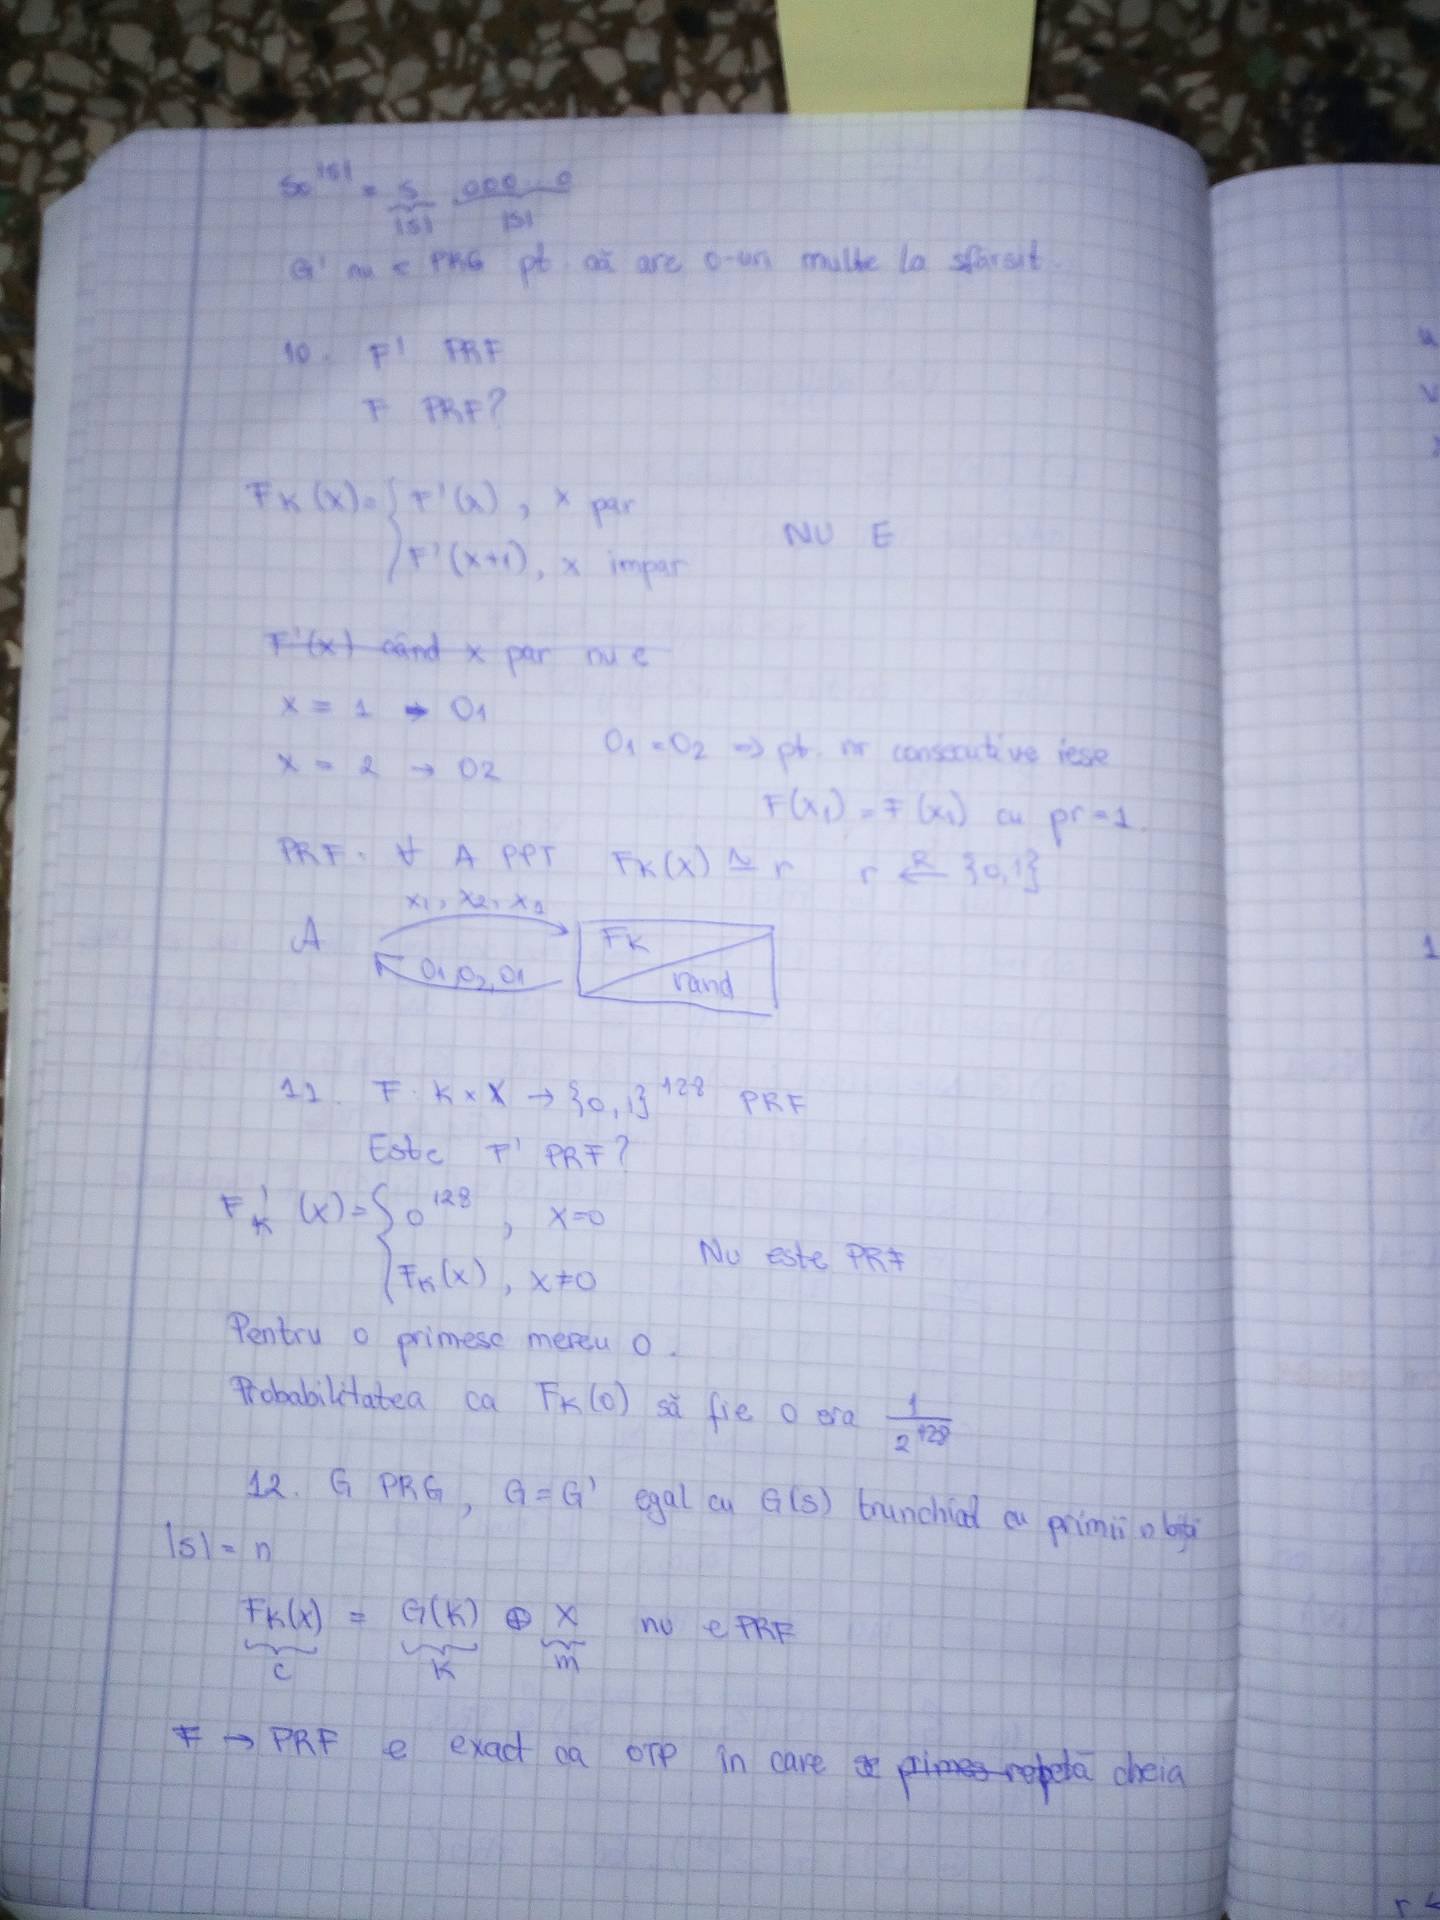 S0^|S| = S 000...0
|S| |S|
G' nu e PRG pt că are 0-uri multe la sfârsit.
10. F' PRF
F PRF?
FK(x) = { F'(x), x par
F'(x+1), x impar
NU E
F'(x) când x par nu e
x = 1 → O1
x = 2 → O2
O1 = O2 => pt. nr consecutive iese
F(x1) = F(x1) cu pr = 1.
PRF. ∀ A PPT FK(x) ≃ r r ←R {0,1}
x1, x2, x1
A
FK
O1, O2, O1
rand
11. F: K × X → {0,1}^128 PRF
Este F' PRF?
F'K (x) = { 0^128, x=0
FK(x), x≠0
Nu este PRF
Pentru 0 primesc mereu 0.
Probabilitatea ca FK(0) să fie 0 era 1/2^128
12. G PRG, G = G' egal cu G(s) trunchiat cu primii n biți
|s| = n
FK(x) = G(K) ⊕ x nu e PRF
c K m
F → PRF e exact ca OTP în care se repetă cheia